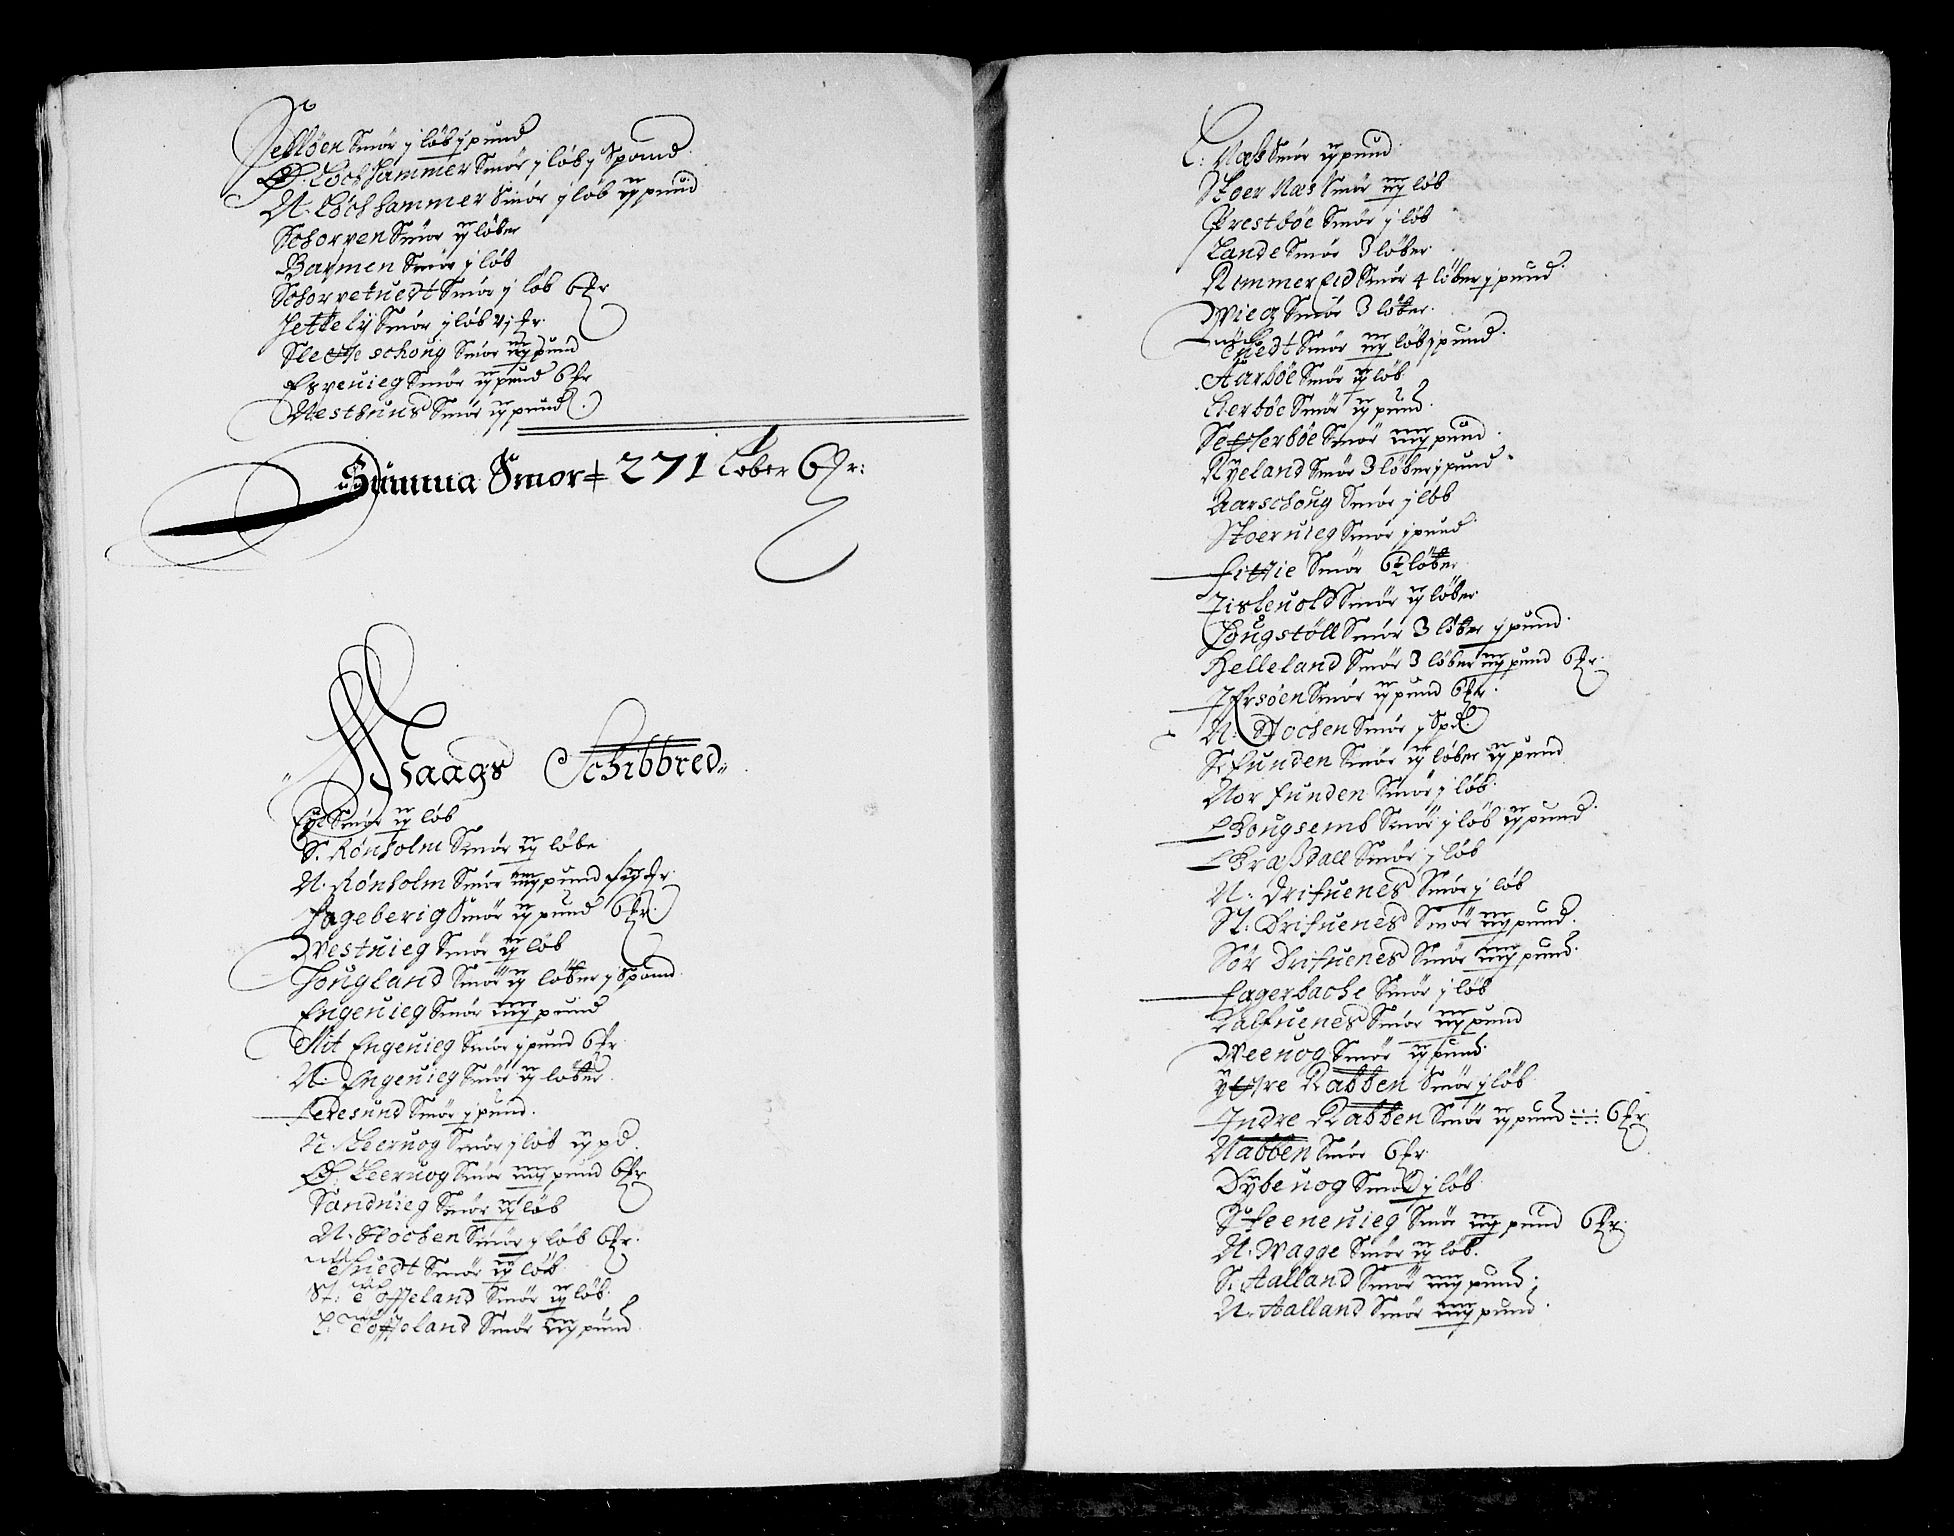 Selløen Smör j løb j pund
Ø. Lochhammer Smör j løb j Spand
N. Lochhammer Smör j løb ij pund
Schorven Smör ij løber
Barmen Smör j løb
Schorvetuedt Smör j løb 6 Mr
Hettely Smör j løb vj Mr
Sletteschoug Smör iij pund
Espeuieg Smör ij pund 6 Mr
Nesthuus Smör ij pund
Summa Smor 271 Løber 6 Mr:
Waags Schibbred
Eye Smör ij løb
S. Rönholm Smör ij løbe
N. Rönholm Smör iiij pund Mr
Fageberig Smör ij pund 6 Mr
Westuieg Smör ij løb
Hougland Smör ij løber j Spand
Engeuieg Smör iiij pund
Mit Engeuieg Smör j pund 6 Mr
N. Engeuieg Smör ij løber
Fedesund Smör j pund
N. Leeruog Smör j løb ij pd
Ø. Leeruog Smör iiij pund 6 Mr
Sanduieg Smör ij løb
N. Stochen Smör j løb 6 Mr
Tuedt Smör ij løb
St. Töffteland Smör ij løb
L. Töffteland Smör iiij pund
L: Næs Smör ij pund
Stoer Næs Smör iij løb
Prestbøe Smör j løb
Lande Smör 3 løber
Rimmereid Smör 4 løber j pund
Wieg Smör 3 løber
Tuedt Smör iij løb j pund
Aarbøe Smör ij løb
Lerbøe Smör ij pund
Setterbøe Smör iiij pund
Nyeland Smör 3 løber j pund
Aarschoug Smör j løb
Stoeruieg Smör j pund
Fittie Smör 6½ løber
Tisleuold Smör ij løber
Hougstöll Smör 3 løber j pund
Helleland Smör 3 løber iij pund 6 Mr
Ifersøen Smör ij pund 6 Mr
N. Stochen Smör j Spd
S. Funden Smör ij løber ij pund
Nor Funden Smör j løb
Hougsemb Smör j løb ij pund
Græsdall Smör j løb
N. Drifuenes Smör j løb
St. Drifuenes Smör iiij pund
Sör Drifuenes Smör iiij pund
Fagerbache Smör j løb
Kalfuenes Smör iij pund
Weeuog Smör ij pund
Yttre Rabben Smör j løb
Indre Rabben Smör ij pund 6 Mr
Nabben Smör 6 Mr
Dybeuog Smör j løb
Steeneuieg Smör iij pund 6 Mr
N. Wagge Smör ij løb
S. Aalland Smör iiij pund
N. Aalland Smör iiij pund